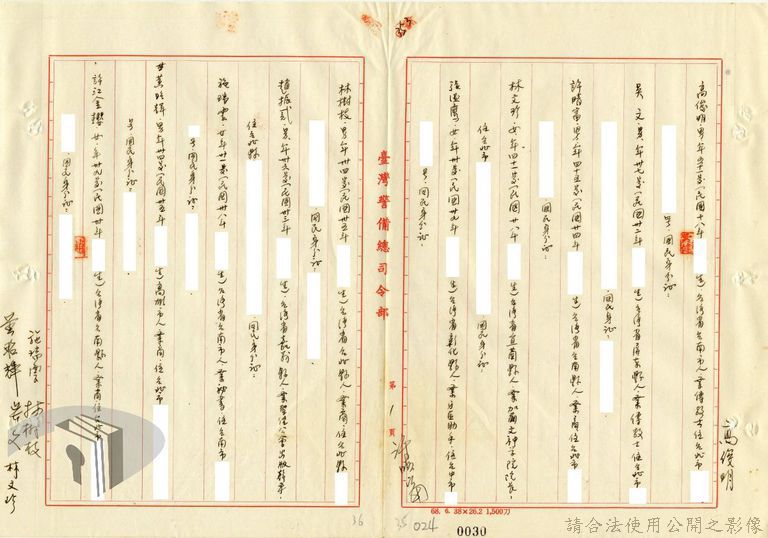 高俊明 男 年 歲(民國十八年 生)台灣省台南縣人 業傳教士 住台北市
號 國民身分證:
吳文 男 年卅七歲(民國卅二年 生)台灣省屏東縣人 業傳教士 住台北市
國民身分證:
許晴富 男 年四十五歲(民國廿四年 生)台灣省台南縣人 業商 住台北市
國民身分證:
林文珍 女 年四十一歲(民國廿八年 生)台灣省宜蘭縣人 業加爾文神學院院長
住台北市 國民身分證:
張溫鷹 女 年 歲(民國卅九年 生)台灣省彰化縣人 業牙醫助手 住台中市
號 國民身分證:
第1頁
臺灣警備總司令部
林樹枝 男 年卅四歲(民國卅五年 生)台灣省台北縣人 業商 住台北縣
國民身分證:
趙振貳 男 年卅六歲(民國卅三年 生)台灣省 縣人
住台北縣 國民身分證:
施瑞雲 女 年 歲(民國卅八年 生)台灣省台南市人 業秘書 住台南市
號 國民身分證:
黃昭輝 男 年卅四歲(民國卅五年 生)高雄市人 業商 住台北市
號 國民身分證:
許江金櫻 女 年廿九歲(民國四十年 生)台灣省台南縣人 業商 住台北市
國民身分證:
高俊明
許晴富
施瑞雲
林樹枝
黃昭輝
吳文
林文珍
36
35
024
68. 6. 38×26.2 1,500刀
0030
請合法使用公開之影像